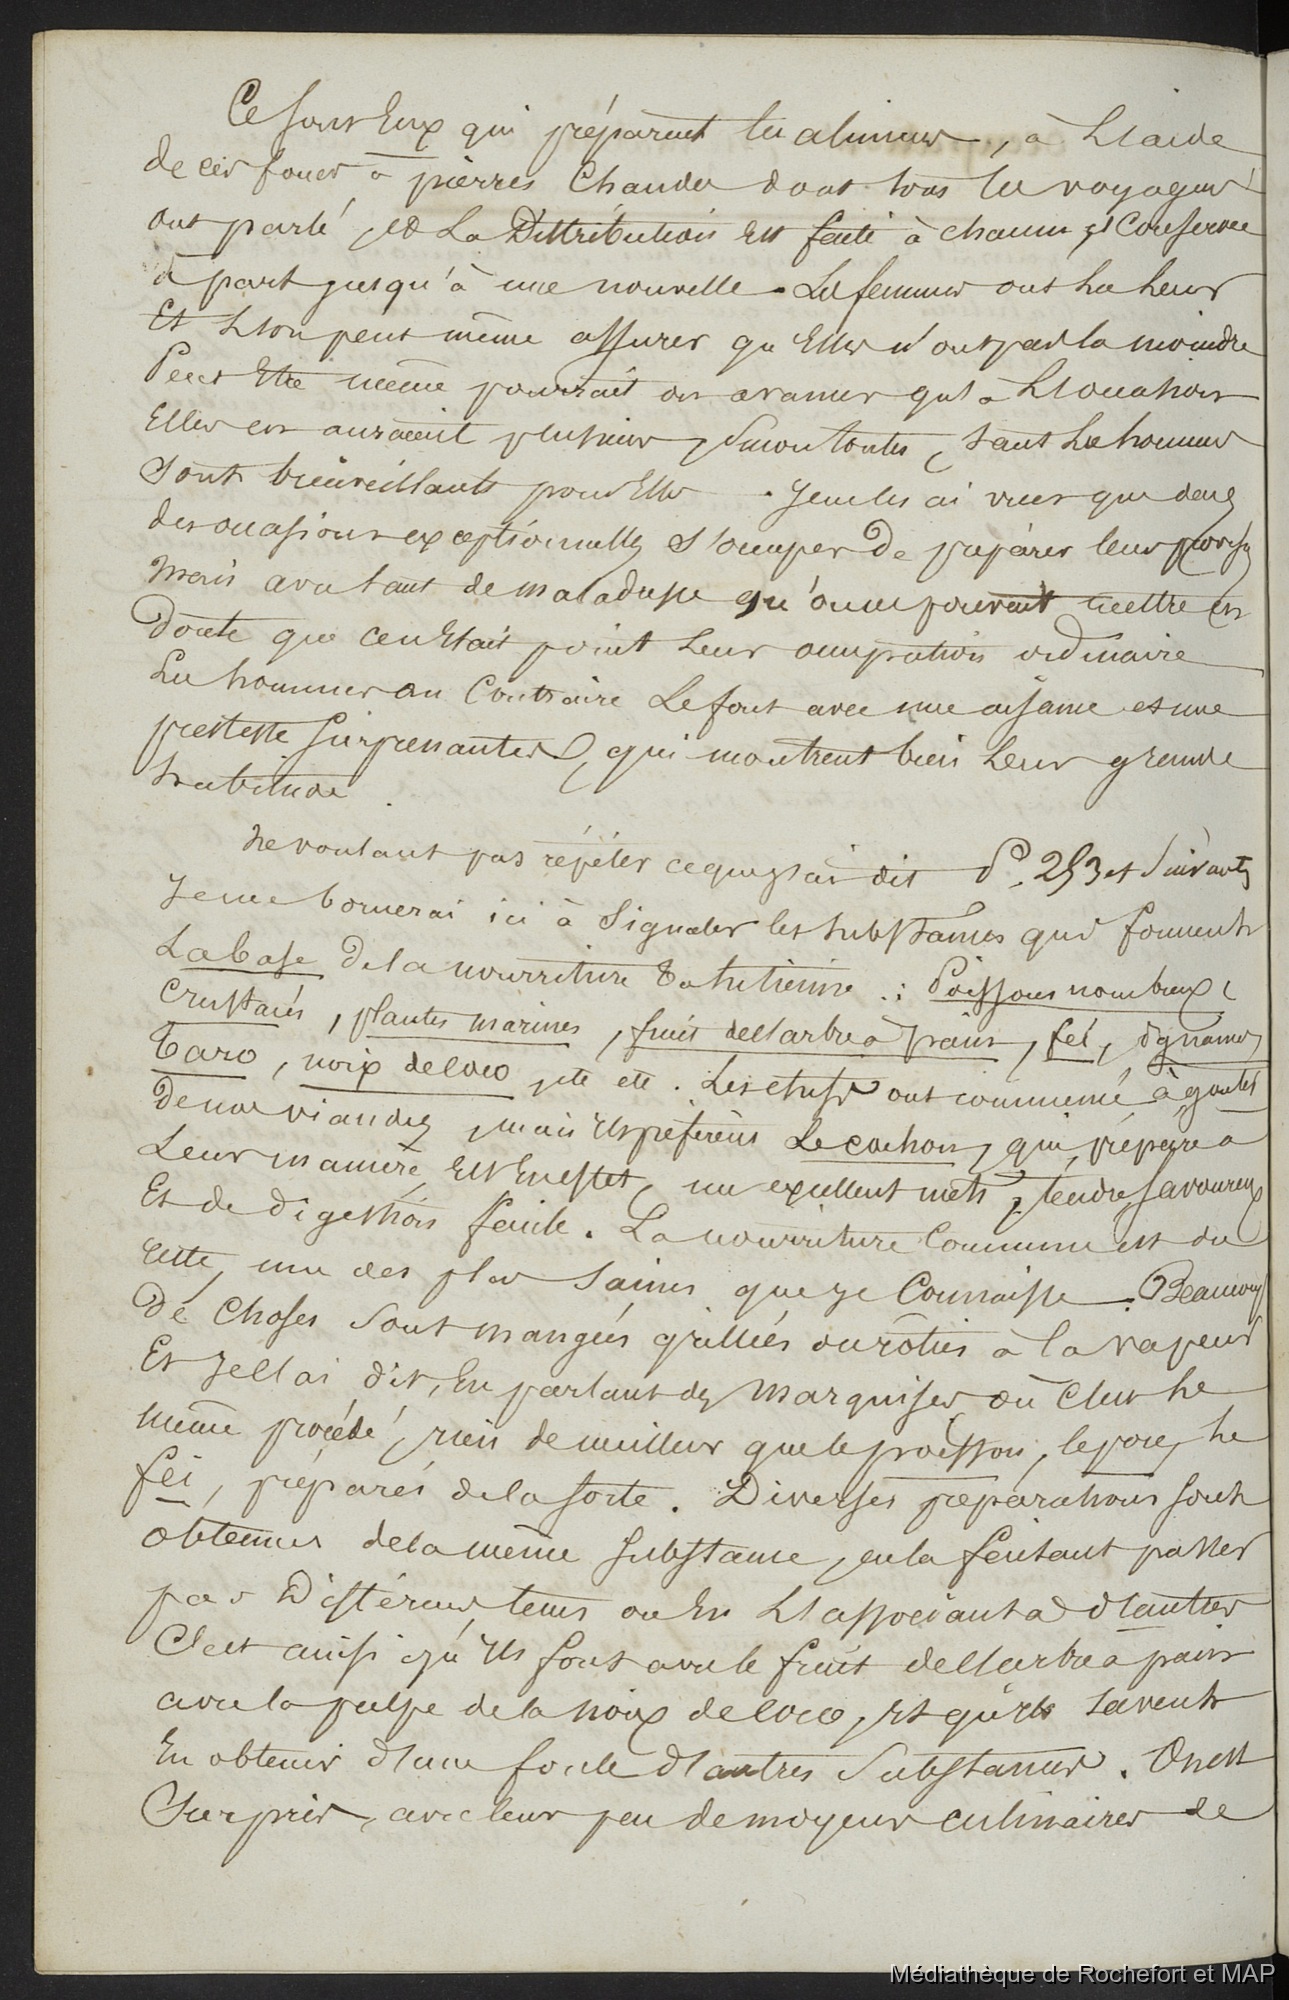 Ce sont Eux qui préparent les aliments, à L'aide
de ces fours à pierres Chaudes dont tous les voyageurs
ont parlé, et La Distribution Est faite à chacun et Conservée
à part jusqu'à une nouvelle. Les femmes ont La Leur
Et L'on peut même assurer qu'Elles n'ont pas la moindre
Peut Etre même pourrait on avancer qu'à L'occasion
Elles en auraient plusieurs, sinon toutes, tant Les hommes
Sont bienveillants pour Elles. Je ne les ai vues que dans
des occasions exceptionnelles s'occuper De préparer leurs
Mais avec tant de maladresse qu'on ne pouvait mettre en
Doute que ce n'Etait point Leur occupation ordinaire
Les hommes au Contraire Le font avec une aisance et une
prestesse surprenantes, qui montrent bien Leur grande
habitude.
Ne voulant pas répéter ce que j'ai dit P. 253 et Suivantes
Je me bornerai ici à Signaler les substances qui forment
La base De la nourriture Tahitienne : Poissons nombreux,
Crustacés, plantes marines, fruit de l'arbre à pain, féi, ignames
Taro, noix de Coco, etc etc. Les chefs ont commencé à goûter
De nos viandes, mais ils préfèrent Le cochon, qui, préparé à
Leur manière, Est En effet, un excellent mets, tendre, savoureux
Et de Digestion facile. La nourriture Commune est du
reste, une des plus Saines que je Connaisse. Beaucoup
De Choses Sont mangées grillées ou rôties à la vapeur
Et Je l'ai dit, En parlant des Marquises où C'est Le
même procédé, rien de meilleur que le poisson, le porc, Le
féi, préparés de la sorte. Diverses préparations sont
obtenues de la même substance, en la faisant passer
par Différents tems ou En L'associant à D'autres
C'est ainsi qu'ils font avec le fruit de l'arbre à pain
avec la pulpe de la noix de Coco, Et qu'ils savent
En obtenir d'une foule d'autres Substances. On est
Surpris, avec leur peu de moyens culinaires de
Médiathèque de Rochefort et MAP